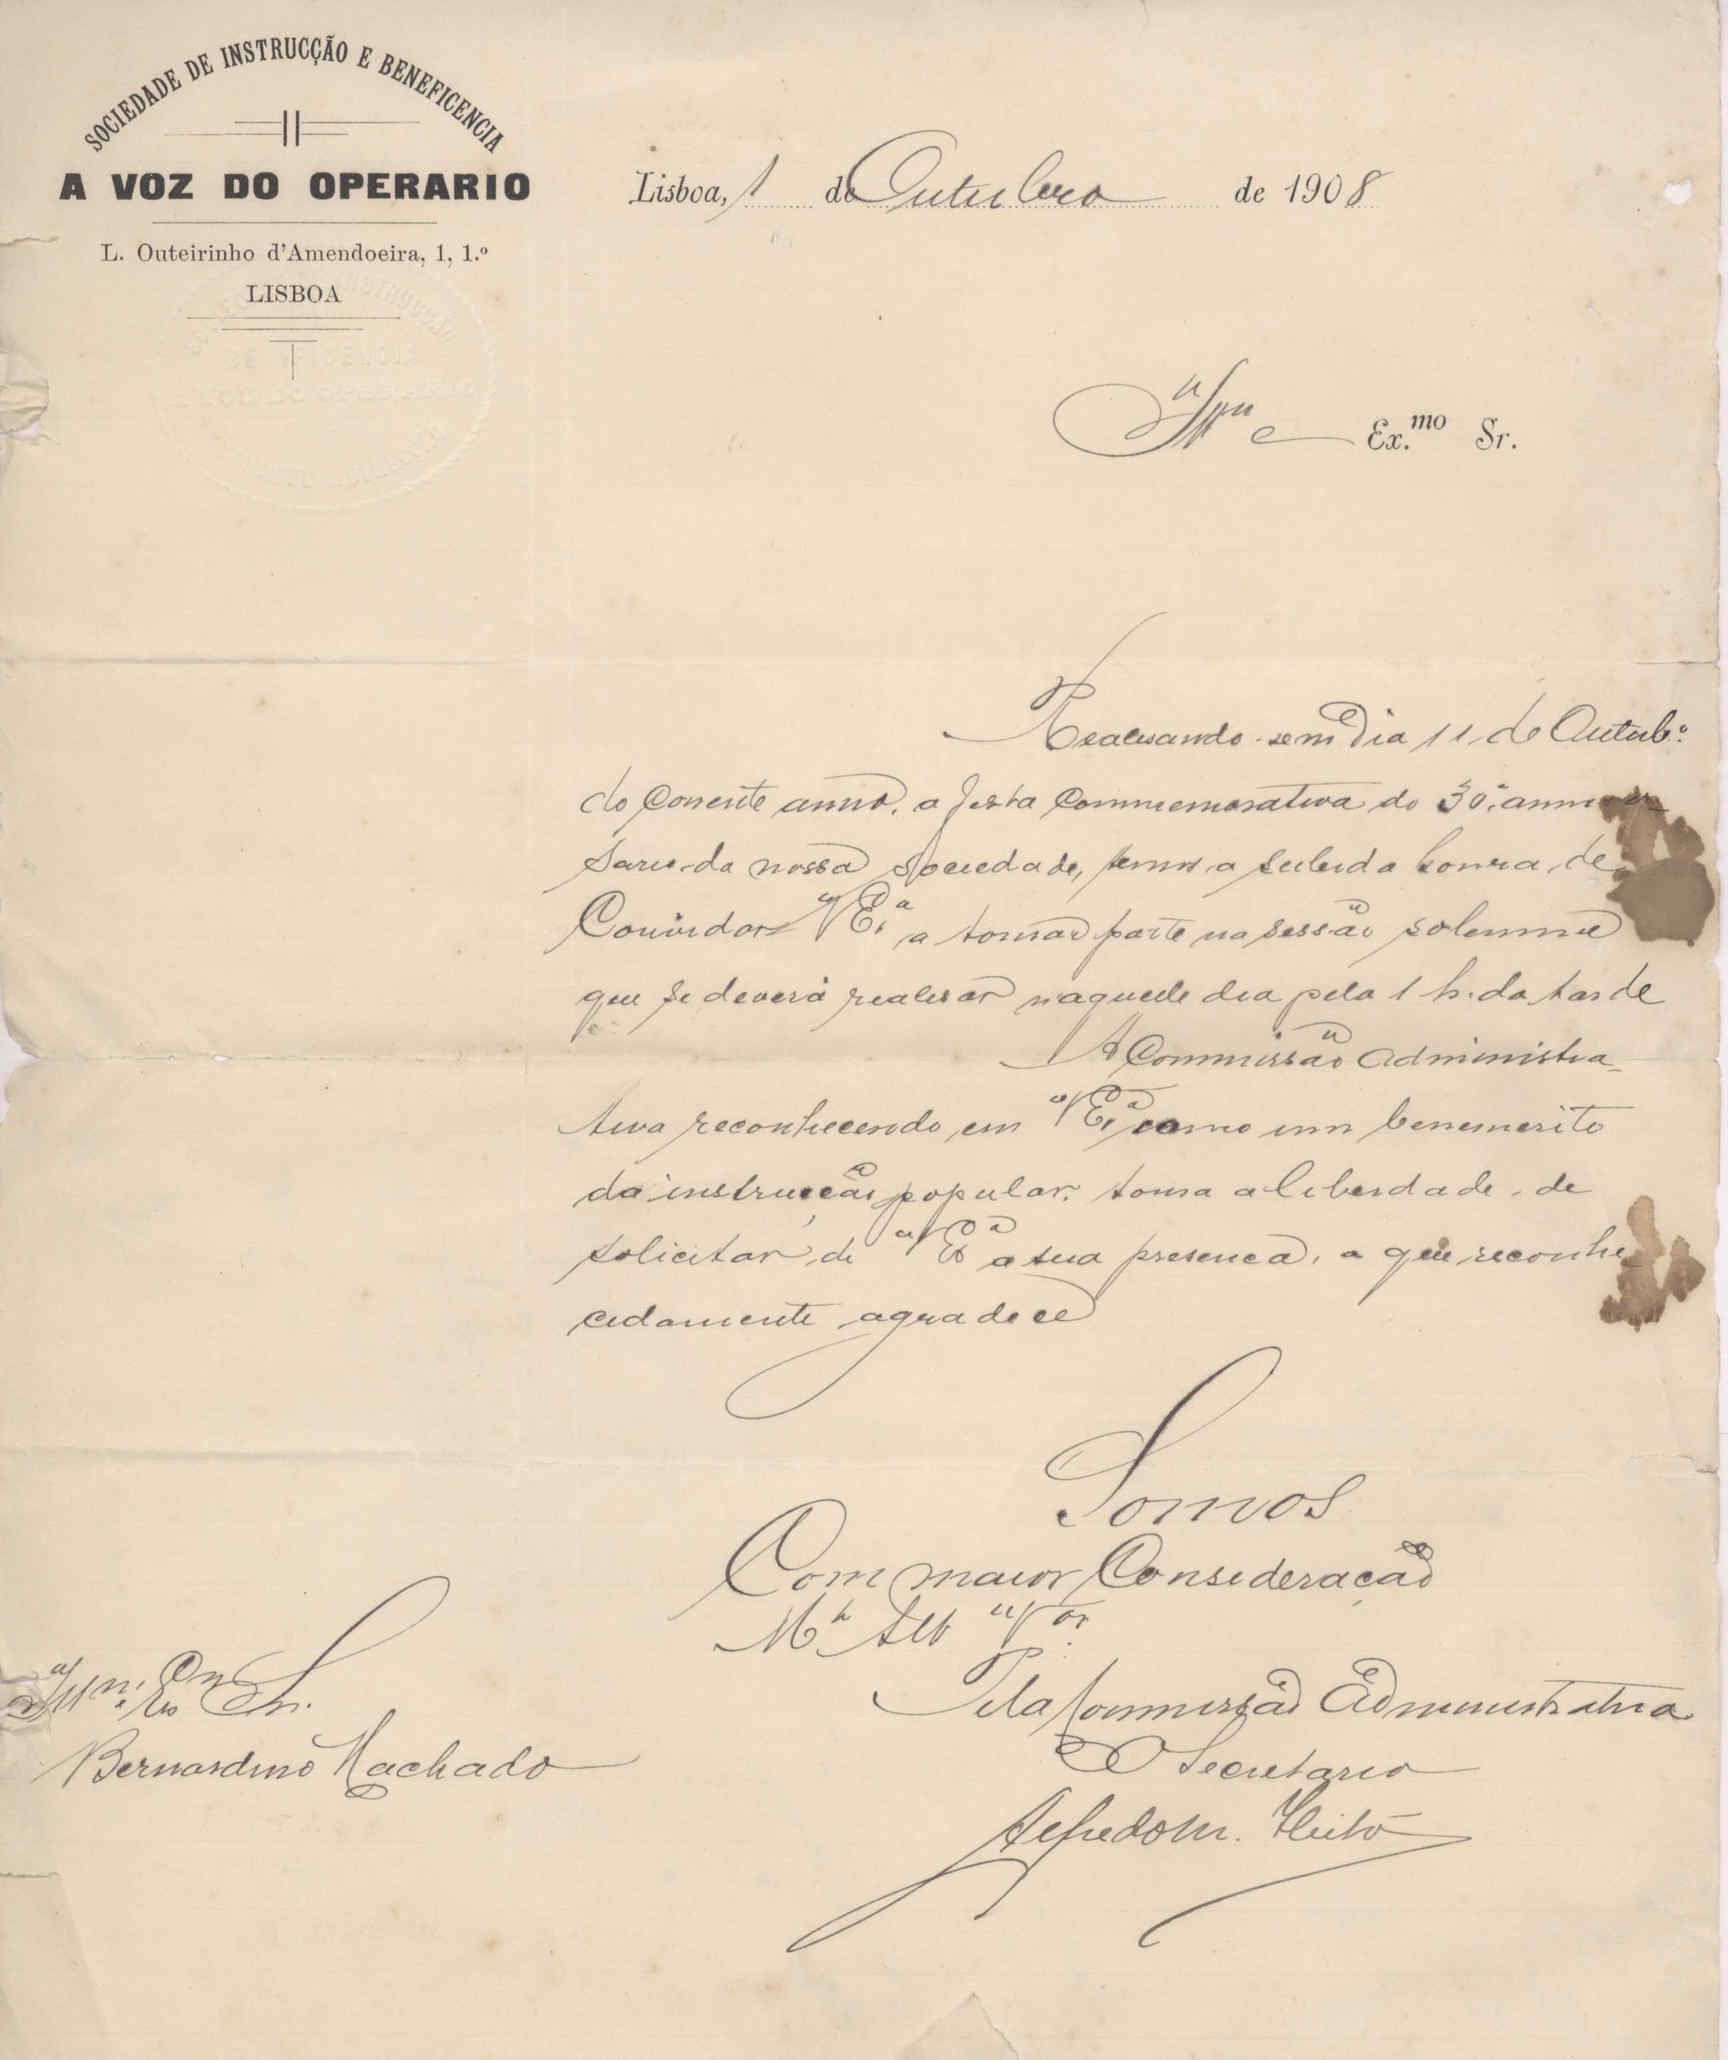 SOCIEDADE DE INSTRUCÇÃO E BENEFICENCIA
A VOZ DO OPERARIO
L. Outeirinho d'Amendoeira, 1, 1.º
LISBOA
Lisboa, 1 de Outubro de 1908
Illmo e Ex.mo Sr.
Realisando-se no dia 11 de Outubº
do corrente anno, a festa commemorativa do 30.º anniver-
sario da nossa Sociedade, temos a subida honra de
Convidar V Exª a tomar parte na sessão solemne
que se deverá realisar naquelle dia pela 1 h. da tarde
A Commissão Administra-
tiva reconhecendo em V Exª como um benemerito
da instrucção popular, toma a liberdade de
solicitar de V Exª a sua presença, o que reconhe-
cidamente agradece
Somos
Com maior Consideração
Mto Atto Vor
Pela Commissão Administrativa
O Secretario
Alfredo M.
Illmo. Exmo Snr.
Bernardino Machado